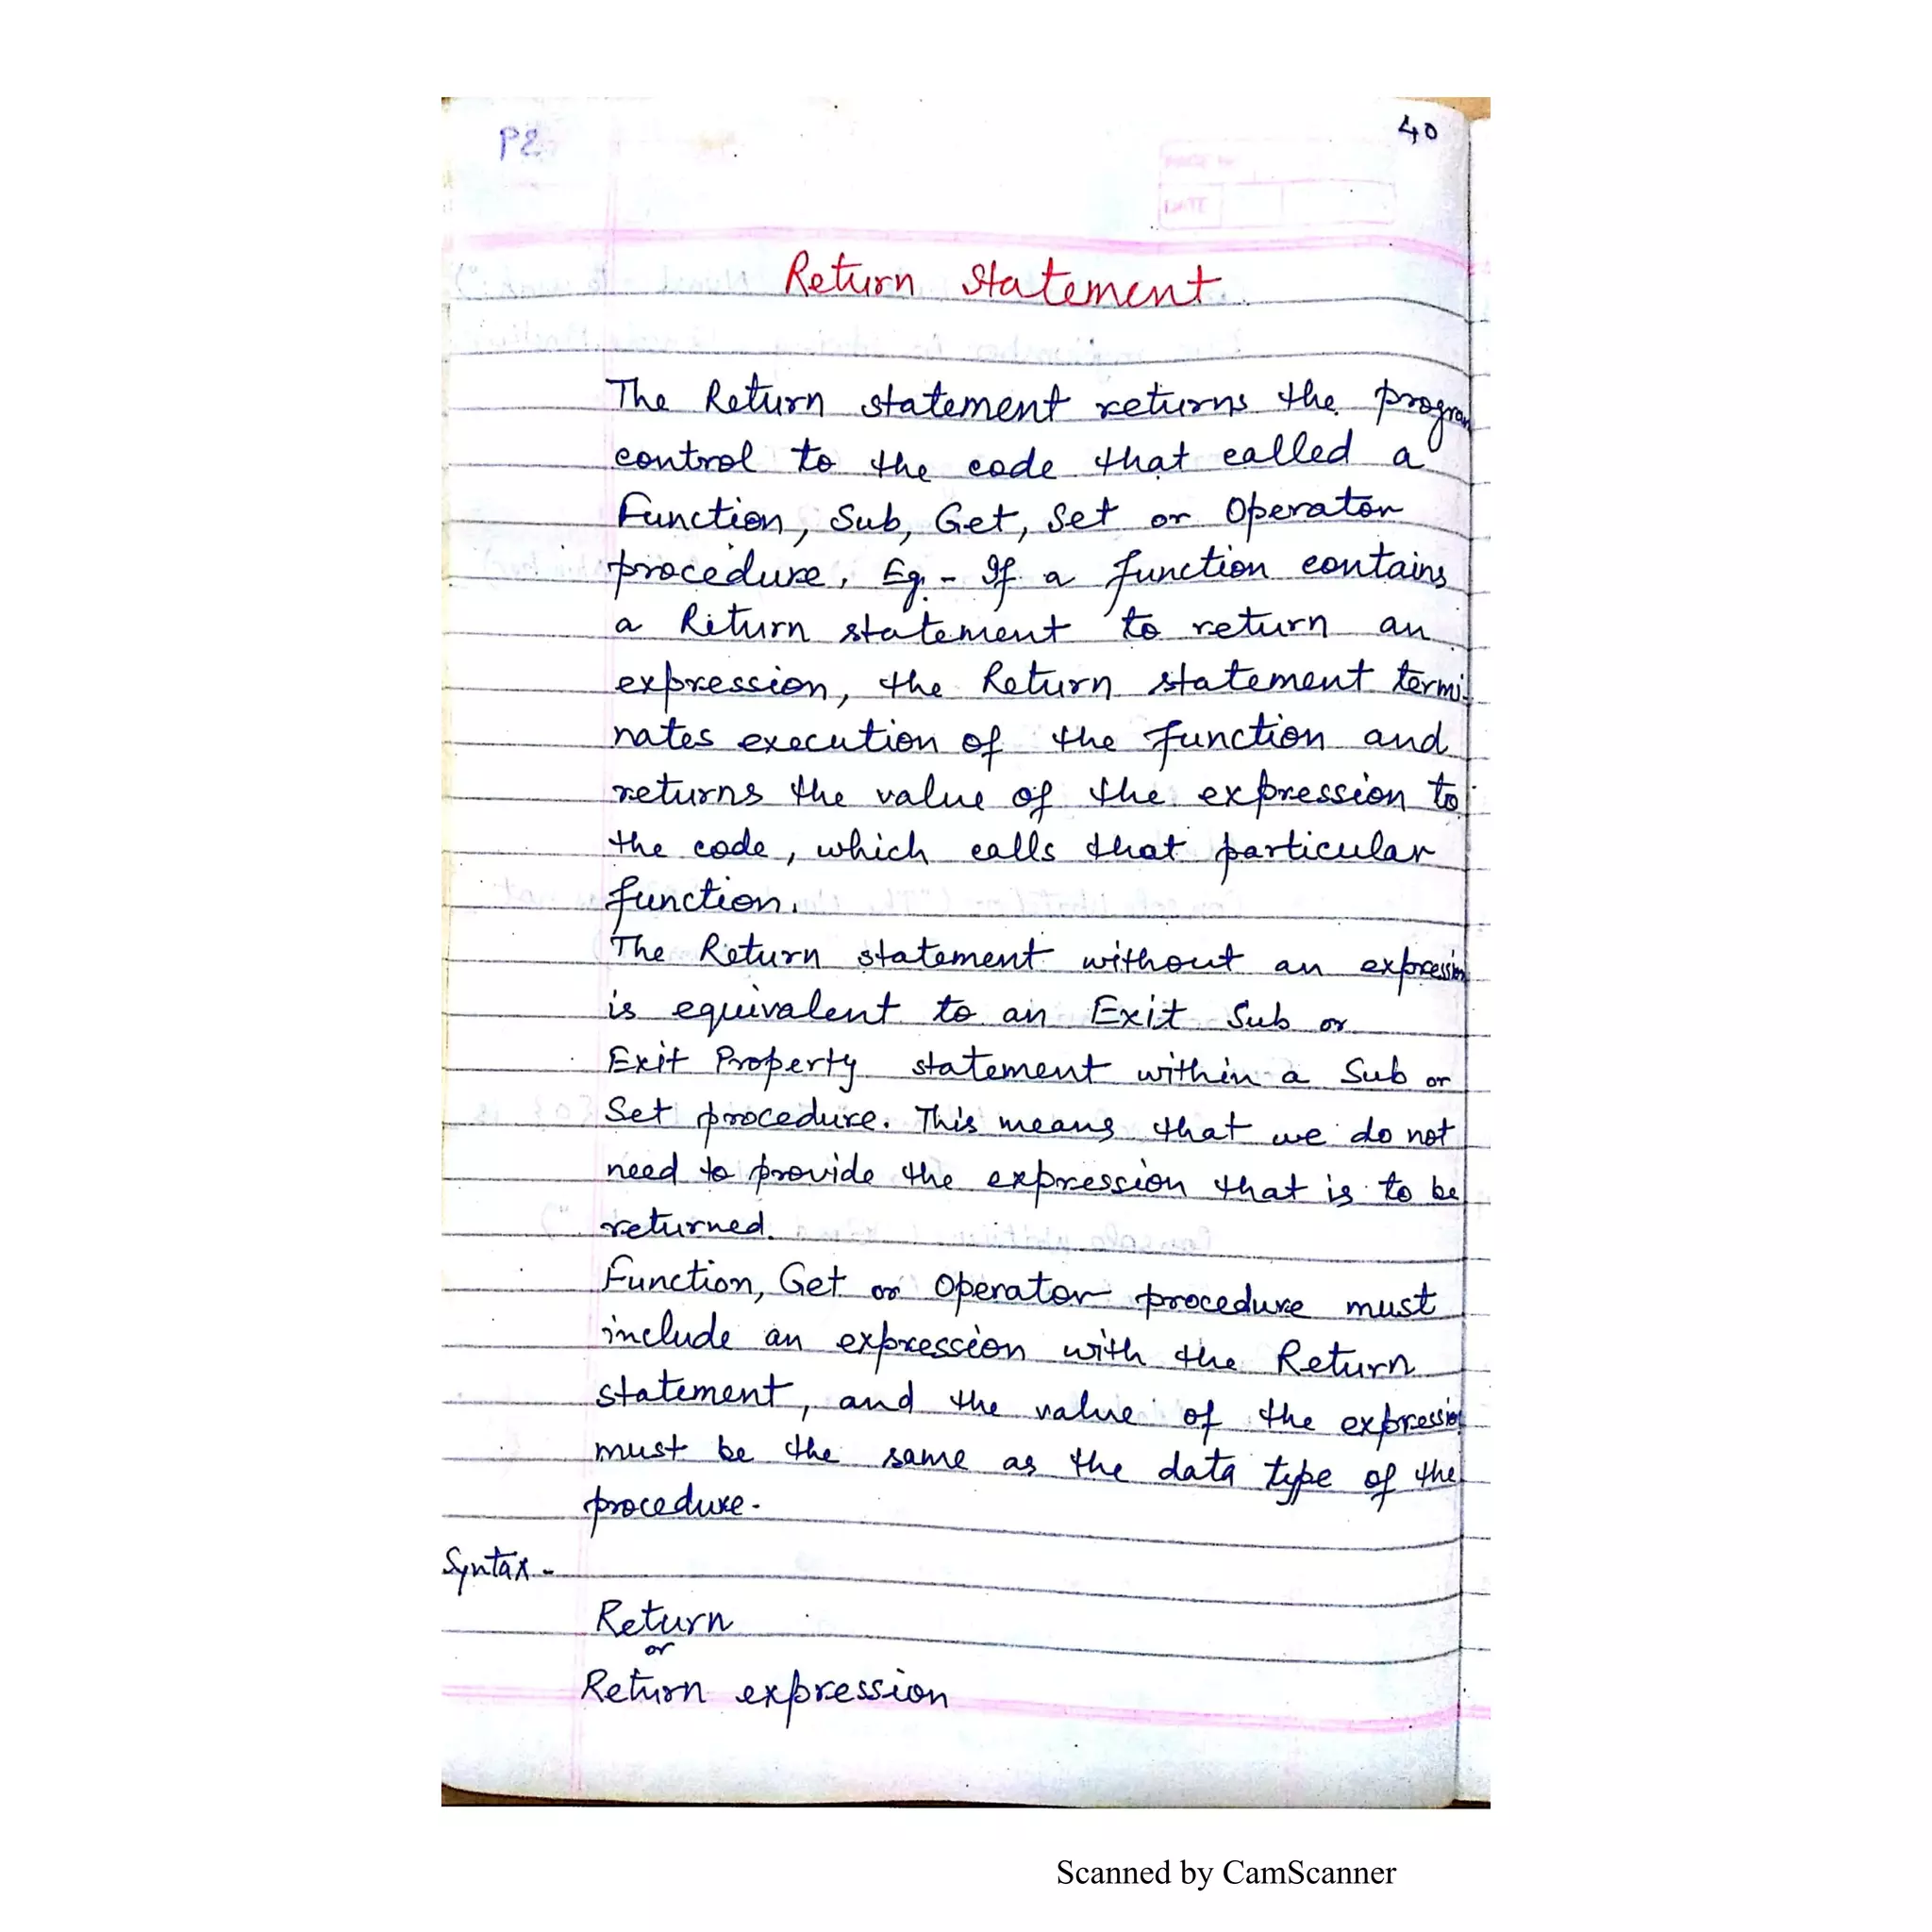 P2
40
PAGE No
DATE
Return Statement
The Return statement returns the program
control to the code that called a
Function, Sub, Get, Set or Operator
procedure. Eg. - If a function contains
a Return statement to return an
expression, the Return statement termi-
nates execution of the function and
returns the value of the expression to
the code, which calls that particular
function.
The Return statement without an expression
is equivalent to an Exit Sub or
Exit Property statement within a Sub or
Set procedure. This means that we do not
need to provide the expression that is to be
returned.
Function, Get or Operator procedure must
include an expression with the Return
statement, and the value of the expression
must be the same as the data type of the
procedure.
Syntax -
Return
or
Return expression
Scanned by CamScanner